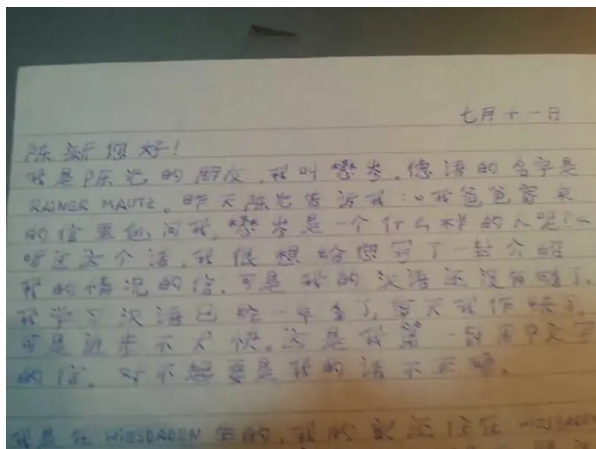 七月十一日
陈新您好!
我是陈光的朋友,我叫懋岑,德语的名字是
RAINER MAUTZ。昨天陈光告诉我:《我爸爸寄来
的信里他问我,懋岑是一个什么样的人呢?》
听这个话,我很想给您写了一封介绍
我的情况的信。可是我的汉语还没有
我学习汉语已经一年多了,每天我作练习,
可是进步不太快。这是我第一封用中文写
的信。对不起要是我的话不太
我是在 WIESBADEN 的,我的 还住在 WIESBADEN